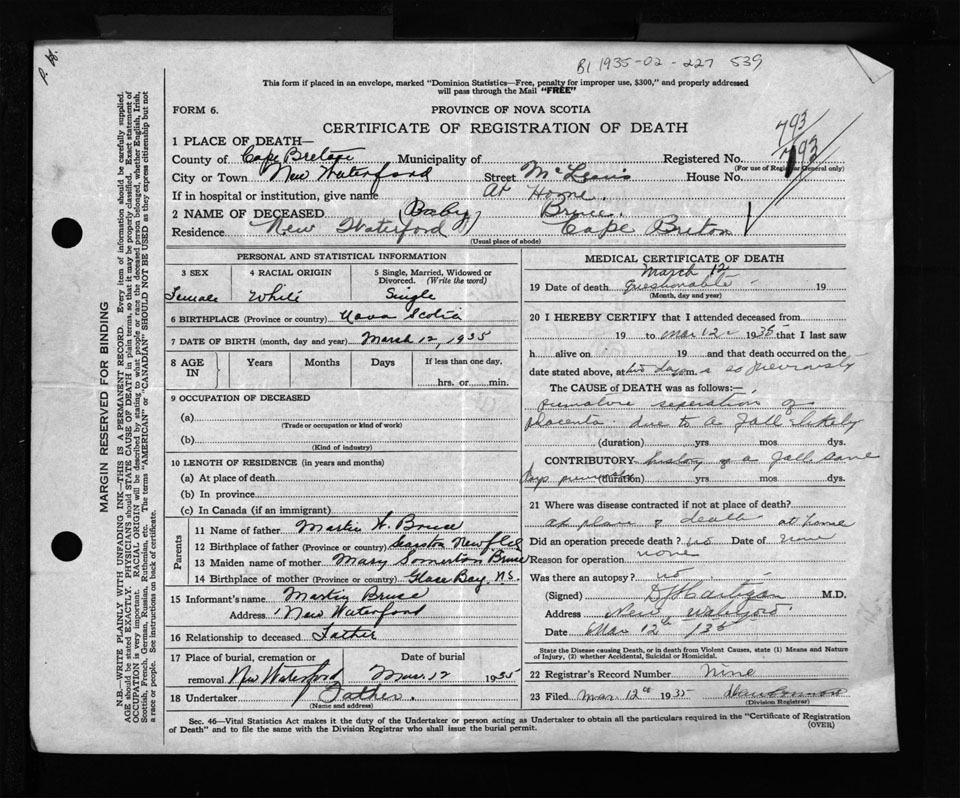 P. H.
B1 1935-02-227 539
This form if placed in an envelope, marked "Dominion Statistics—Free, penalty for improper use, $300," and properly addressed
will pass through the Mail "FREE"
FORM 6.
PROVINCE OF NOVA SCOTIA
CERTIFICATE OF REGISTRATION OF DEATH
793
1 PLACE OF DEATH—
County of Cape Breton Municipality of Registered No. 793
(For use of Registrar General only)
City or Town New Waterford Street McLean's House No.
If in hospital or institution, give name At Home.
2 NAME OF DECEASED (Baby) Bruce.
Residence New Waterford Cape Briton
(Usual place of abode)
PERSONAL AND STATISTICAL INFORMATION
3 SEX 4 RACIAL ORIGIN 5 Single, Married, Widowed or
Divorced. (Write the word)
Female White Single
6 BIRTHPLACE (Province or country) Nova Scotia
7 DATE OF BIRTH (month, day and year) March 12, 1935
8 AGE IN Years Months Days If less than one day,
hrs. or min.
9 OCCUPATION OF DECEASED
(a)
(Trade or occupation or kind of work)
(b)
(Kind of industry)
10 LENGTH OF RESIDENCE (in years and months)
(a) At place of death
(b) In province
(c) In Canada (if an immigrant)
Parents
11 Name of father Martin W. Bruce
12 Birthplace of father (Province or country) Newfld
13 Maiden name of mother Mary Somerton Bruce
14 Birthplace of mother (Province or country) Glace Bay, N.S.
15 Informant's name Martin Bruce
Address New Waterford
16 Relationship to deceased Father
17 Place of burial, cremation or Date of burial
removal New Waterford Mar. 12 1935
18 Undertaker Father.
(Name and address)
MEDICAL CERTIFICATE OF DEATH
March 12
19 Date of death questionable 19
(Month, day and year)
20 I HEREBY CERTIFY that I attended deceased from
19 to Mar 12 1935 that I last saw
h alive on 19 and that death occurred on the
date stated above, at two days m. or so previously
The CAUSE of DEATH was as follows:—
premature seperation of
placenta due to a fall likely
(duration) yrs. mos. dys.
CONTRIBUTORY history of a fall some
days previously (duration) yrs. mos. dys.
21 Where was disease contracted if not at place of death?
at place of death at home
Did an operation precede death? no Date of none
Reason for operation none
Was there an autopsy? no
(Signed) Hartigan M.D.
Address New Waterford
Date Mar 12th /35
State the Disease causing Death, or in death from Violent Causes, state (1) Means and Nature
of Injury, (2) whether Accidental, Suicidal or Homicidal.
22 Registrar's Record Number Nine
23 Filed Mar 12th 1935
(Division Registrar)
Sec. 46—Vital Statistics Act makes it the duty of the Undertaker or person acting as Undertaker to obtain all the particulars required in the "Certificate of Registration
of Death" and to file the same with the Division Registrar who shall issue the burial permit.
(OVER)
MARGIN RESERVED FOR BINDING
N.B.—WRITE PLAINLY WITH UNFADING INK—THIS IS A PERMANENT RECORD. Every item of information should be carefully supplied.
AGE should be stated EXACTLY. PHYSICIANS should STATE CAUSE OF DEATH in plain terms, so that it may be properly classified. Exact statement of
OCCUPATION is very important. RACIAL ORIGIN will be described by stating to what people or race the deceased person belonged, whether English, Irish,
Scottish, French, German, Russian, Ruthenian, etc. The terms "AMERICAN" or "CANADIAN" SHOULD NOT BE USED as they express citizenship but not
a race or people. See instructions on back of certificate.